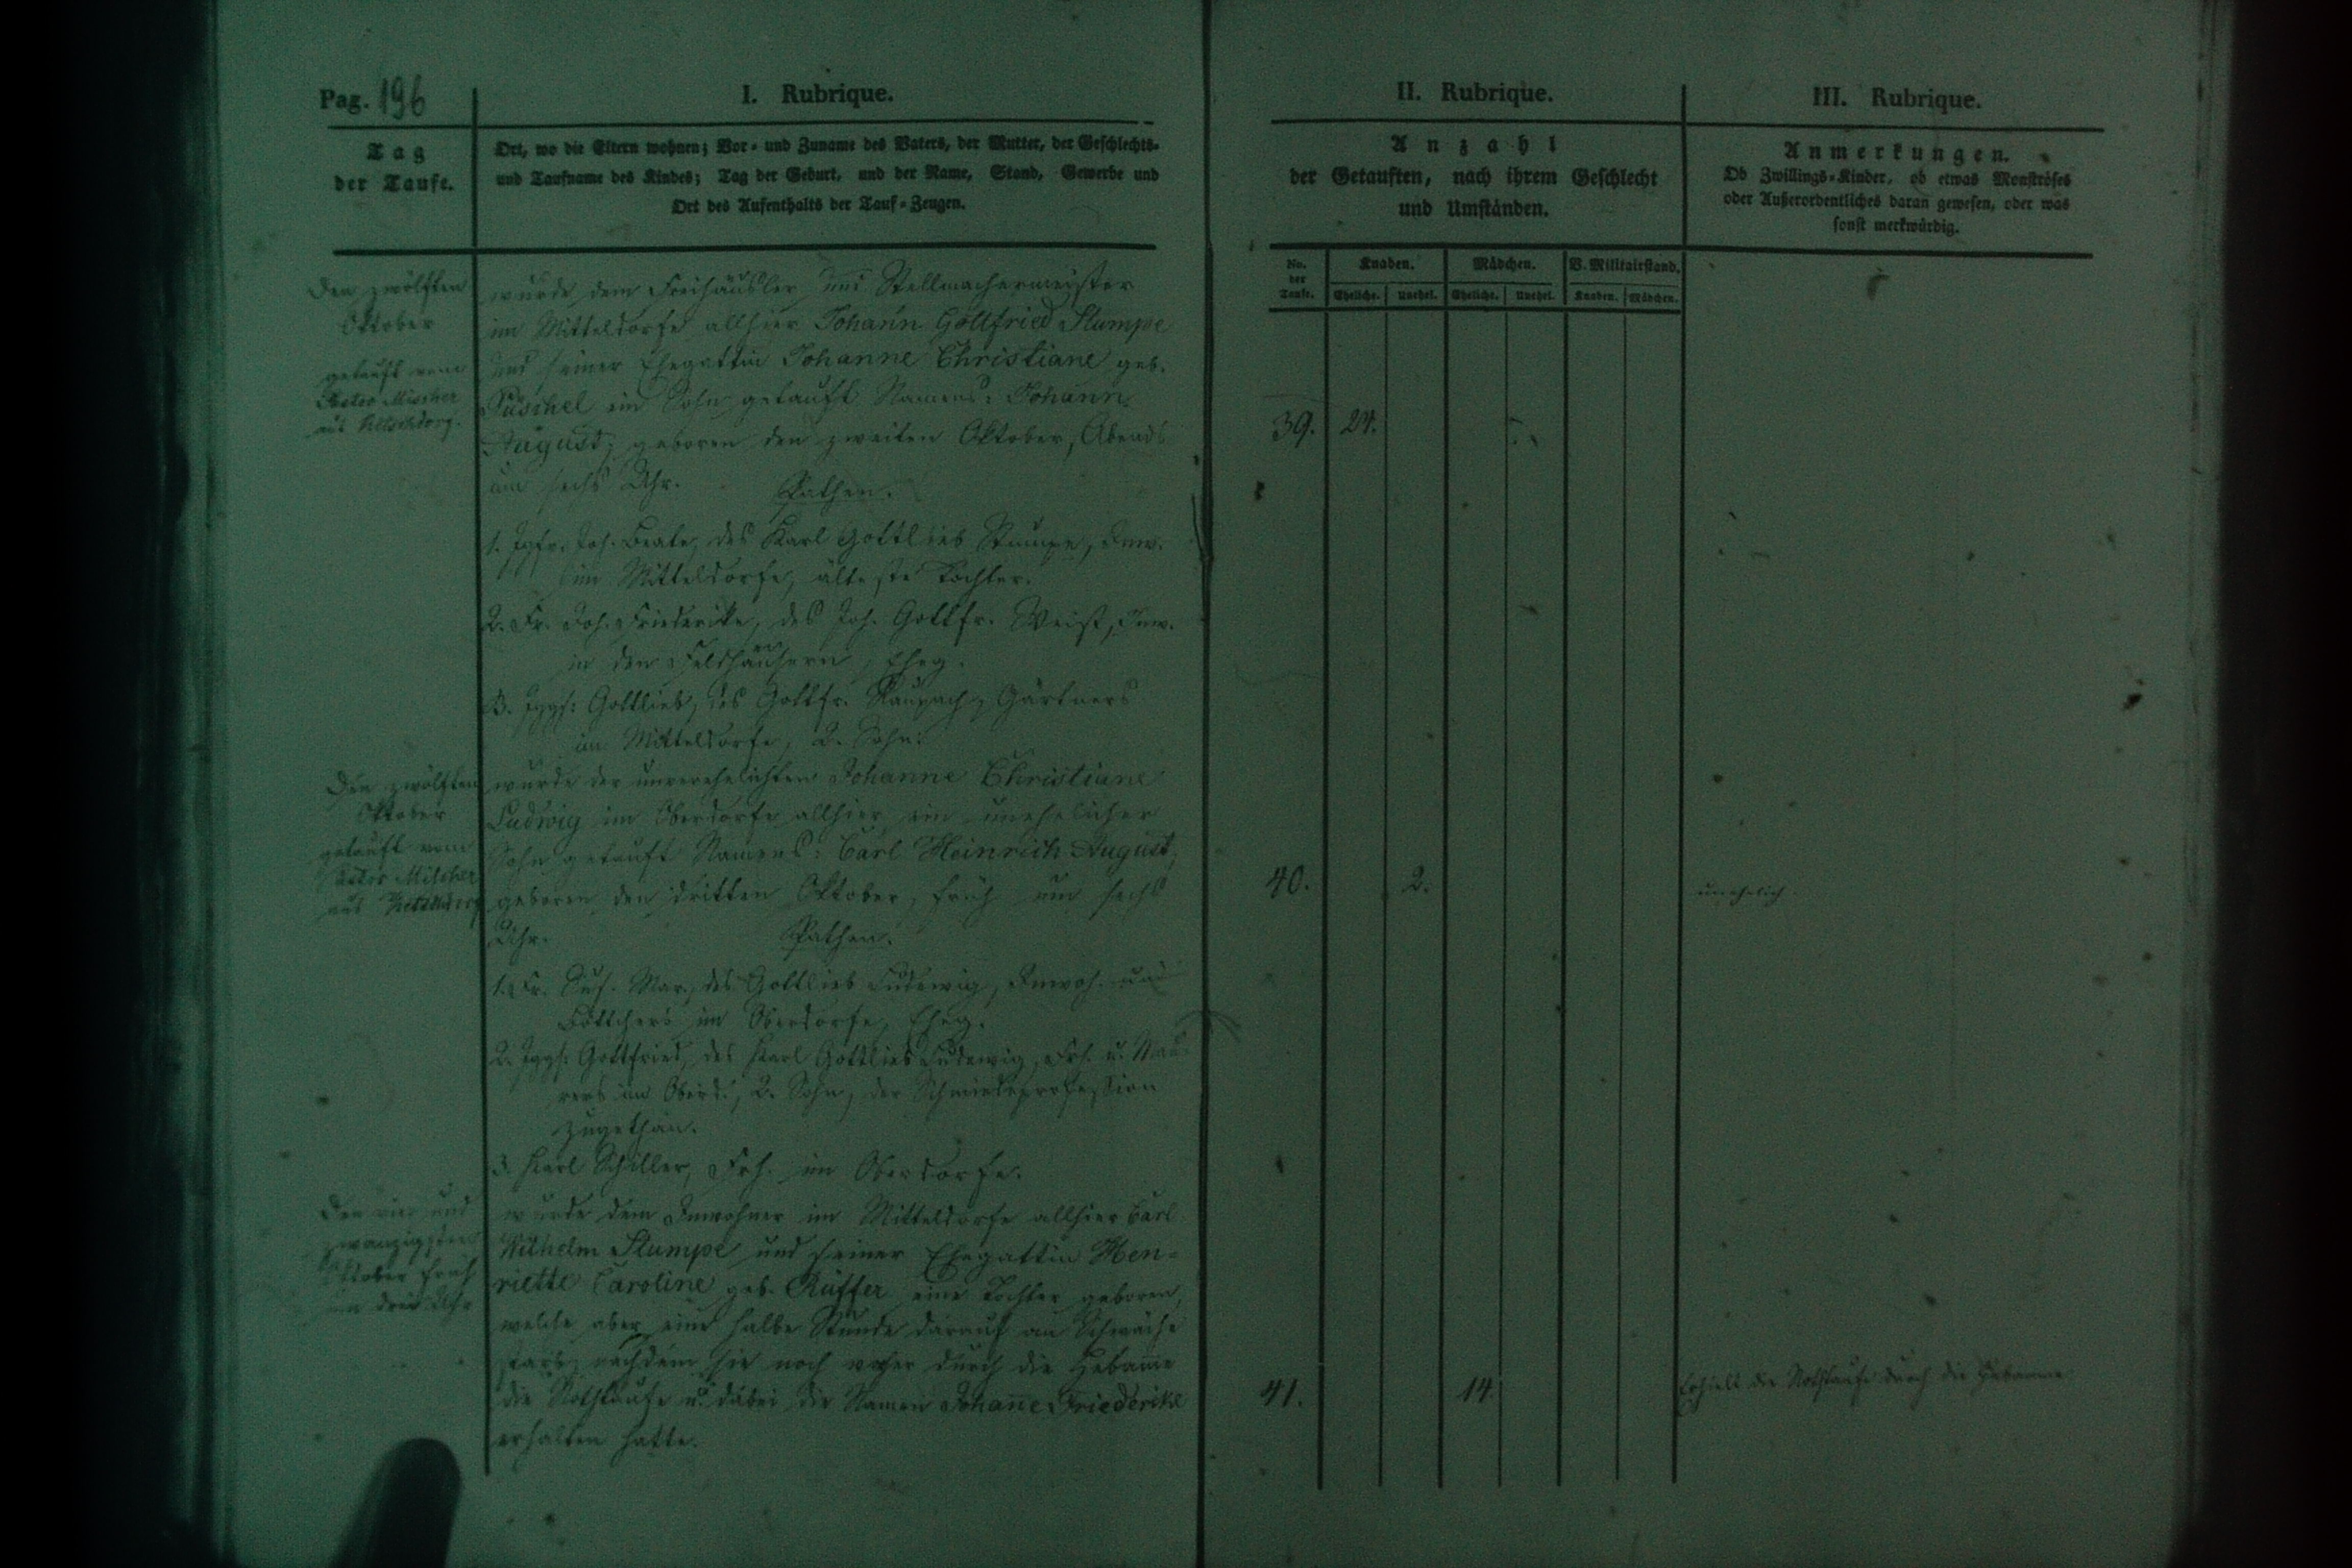 Pag. 196
I. Rubrique.
Tag
der Taufe.
Ort, wo die Eltern wohnen; Vor- und Zuname des Vaters, der Mutter, der Geschlechts-
und Taufname des Kindes; Tag der Geburt, und der Name, Stand, Gewerbe und
Ort des Aufenthalts der Tauf-Zeugen.
II. Rubrique.
Anzahl
der Getauften, nach ihrem Geschlecht
und Umständen.
III. Rubrique.
Anmerkungen.
Ob Zwillings-Kinder, ob etwas Monströses
oder Außerordentliches daran gewesen, oder was
sonst merkwürdig.
No. der Taufe.
Knaben.
Mädchen.
V. Militairstand.
Eheliche. Unehel. Eheliche. Unehel. Knaben. Mädchen.
Den zwölften
Oktober
getauft vom
Pastor Milcher
aus
wurde dem Freihäusler und Stellmachermeister
im Mitteldorfe allhier Johann Gottfried Stumpe
und seiner Ehegattin Johanne Christiane geb.
Püschel ein Sohn getauft Namens: Johann
August; geboren den zweiten Oktober, Abends
um sechs Uhr. Pathen.
1. Jgfr. Joh. Beate, des Karl Gottlieb Stumpe, Inw.
im Mitteldorfe, älteste Tochter.
2. Fr. Joh. Friederike, des Joh. Gottfr. Weist, Inw.
in den Feldhäusern, Eheg.
3. Jggs: Gottlieb, des Gottfr. Raupach, Gärtners
im Mitteldorfe, 2. Sohn.
39. 24.
Den zwölften
Oktober
getauft vom
Pastor Milcher
aus
wurde der unverehelichten Johanne Christiane
Ludwig im Oberdorfe allhier ein unehelicher
Sohn getauft Namens: Carl Heinrich August,
geboren den dritten Oktober, früh um sechs
Uhr. Pathen.
1. Fr. Sus. Mar., des Gottlieb Ludewig, Inwoh. und
Böttchers im Oberdorfe, Eheg.
2. Jggs: Gottfried, des Karl Gottlieb Ludewig, Frh. u. Mau-
rers im Oberd., 2. Sohn, der Schmiedeprofession
zugethan.
3. Karl Schiller, Frh. im Oberdorfe.
40. 2.
unehelich.
Den vier und
zwanzigsten
Oktober früh
um drei Uhr
wurde dem Inwohner im Mitteldorfe allhier Carl
Wilhelm Stumpe und seiner Ehegattin Hen-
riette Caroline geb. Rüffer eine Tochter geboren,
welche aber eine halbe Stunde darauf an Schwäche
starb, nachdem sie noch vorher durch die Hebamme
die Nothtaufe u. dabei die Namen Johanne Friederike
erhalten hatte.
41. 14.
Erhielt die Nothtaufe durch die Hebamme